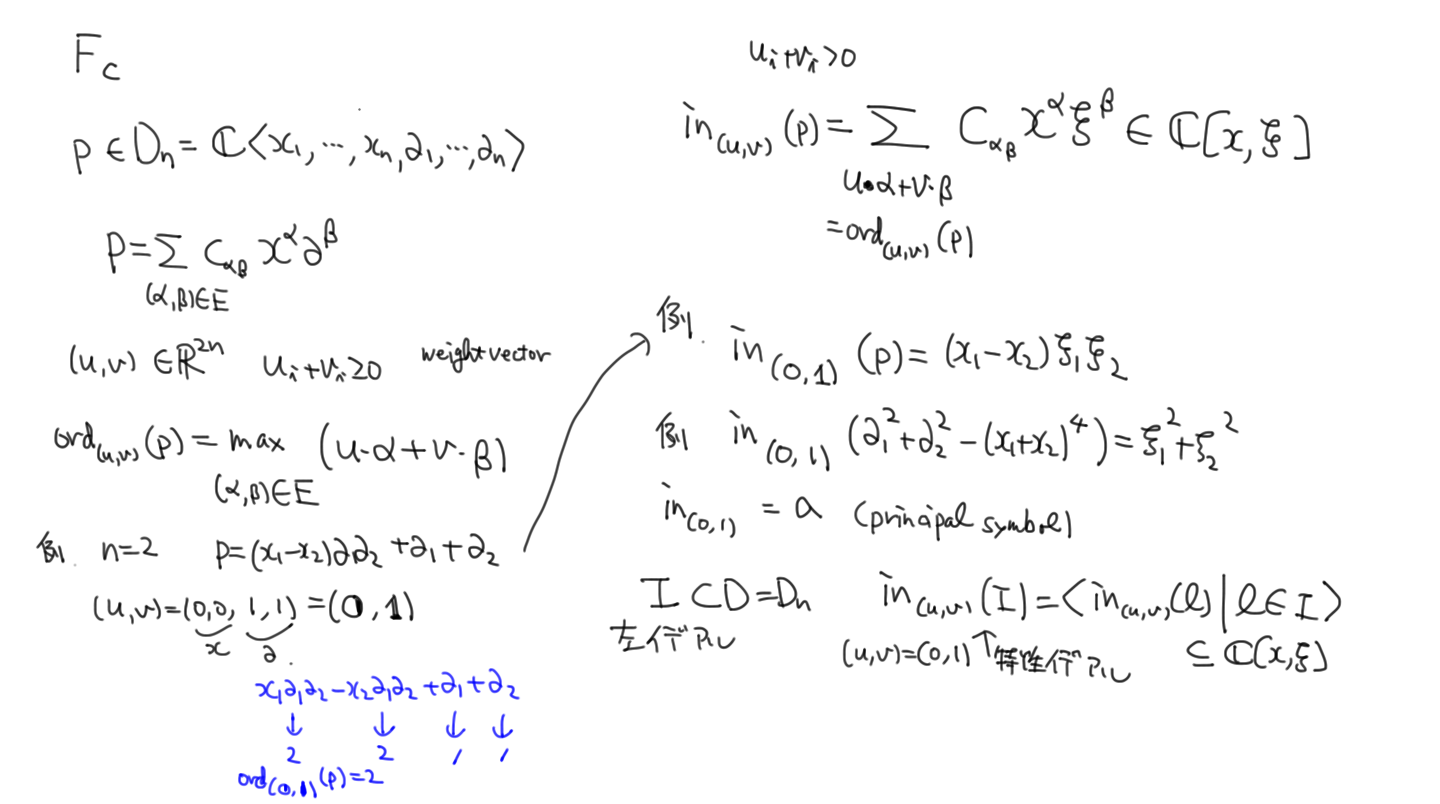 F_C
p ∈ D_n = ℂ⟨x_1, ⋯, x_n, ∂_1, ⋯, ∂_n⟩
p = Σ_{(α,β)∈E} C_{αβ} x^α ∂^β
(u,v) ∈ ℝ^{2n} u_i+v_i≥0 weight vector
ord_{(u,v)}(p) = max_{(α,β)∈E} (u·α+v·β)
例. n=2 p=(x_1-x_2)∂_1∂_2+∂_1+∂_2
(u,v)=(0,0,1,1)=(0,1)
x ∂.
x_1∂_1∂_2-x_2∂_1∂_2+∂_1+∂_2
↓ ↓ ↓ ↓
2 2 1 1
ord_{(0,1)}(p)=2
u_i+v_i>0
in_{(u,v)}(p) = Σ_{u·α+v·β=ord_{(u,v)}(p)} C_{αβ} x^α ξ^β ∈ ℂ[x,ξ]
例. in_{(0,1)}(p) = (x_1-x_2)ξ_1ξ_2
例 in_{(0,1)}(∂_1^2+∂_2^2-(x_1+x_2)^4) = ξ_1^2+ξ_2^2
in_{(0,1)} = σ (principal symbol)
I ⊂ D=D_n in_{(u,v)}(I) = ⟨in_{(u,v)}(ℓ) | ℓ∈I⟩
左イデアル (u,v)=(0,1) ↑特性イデアル ⊆ ℂ[x,ξ]